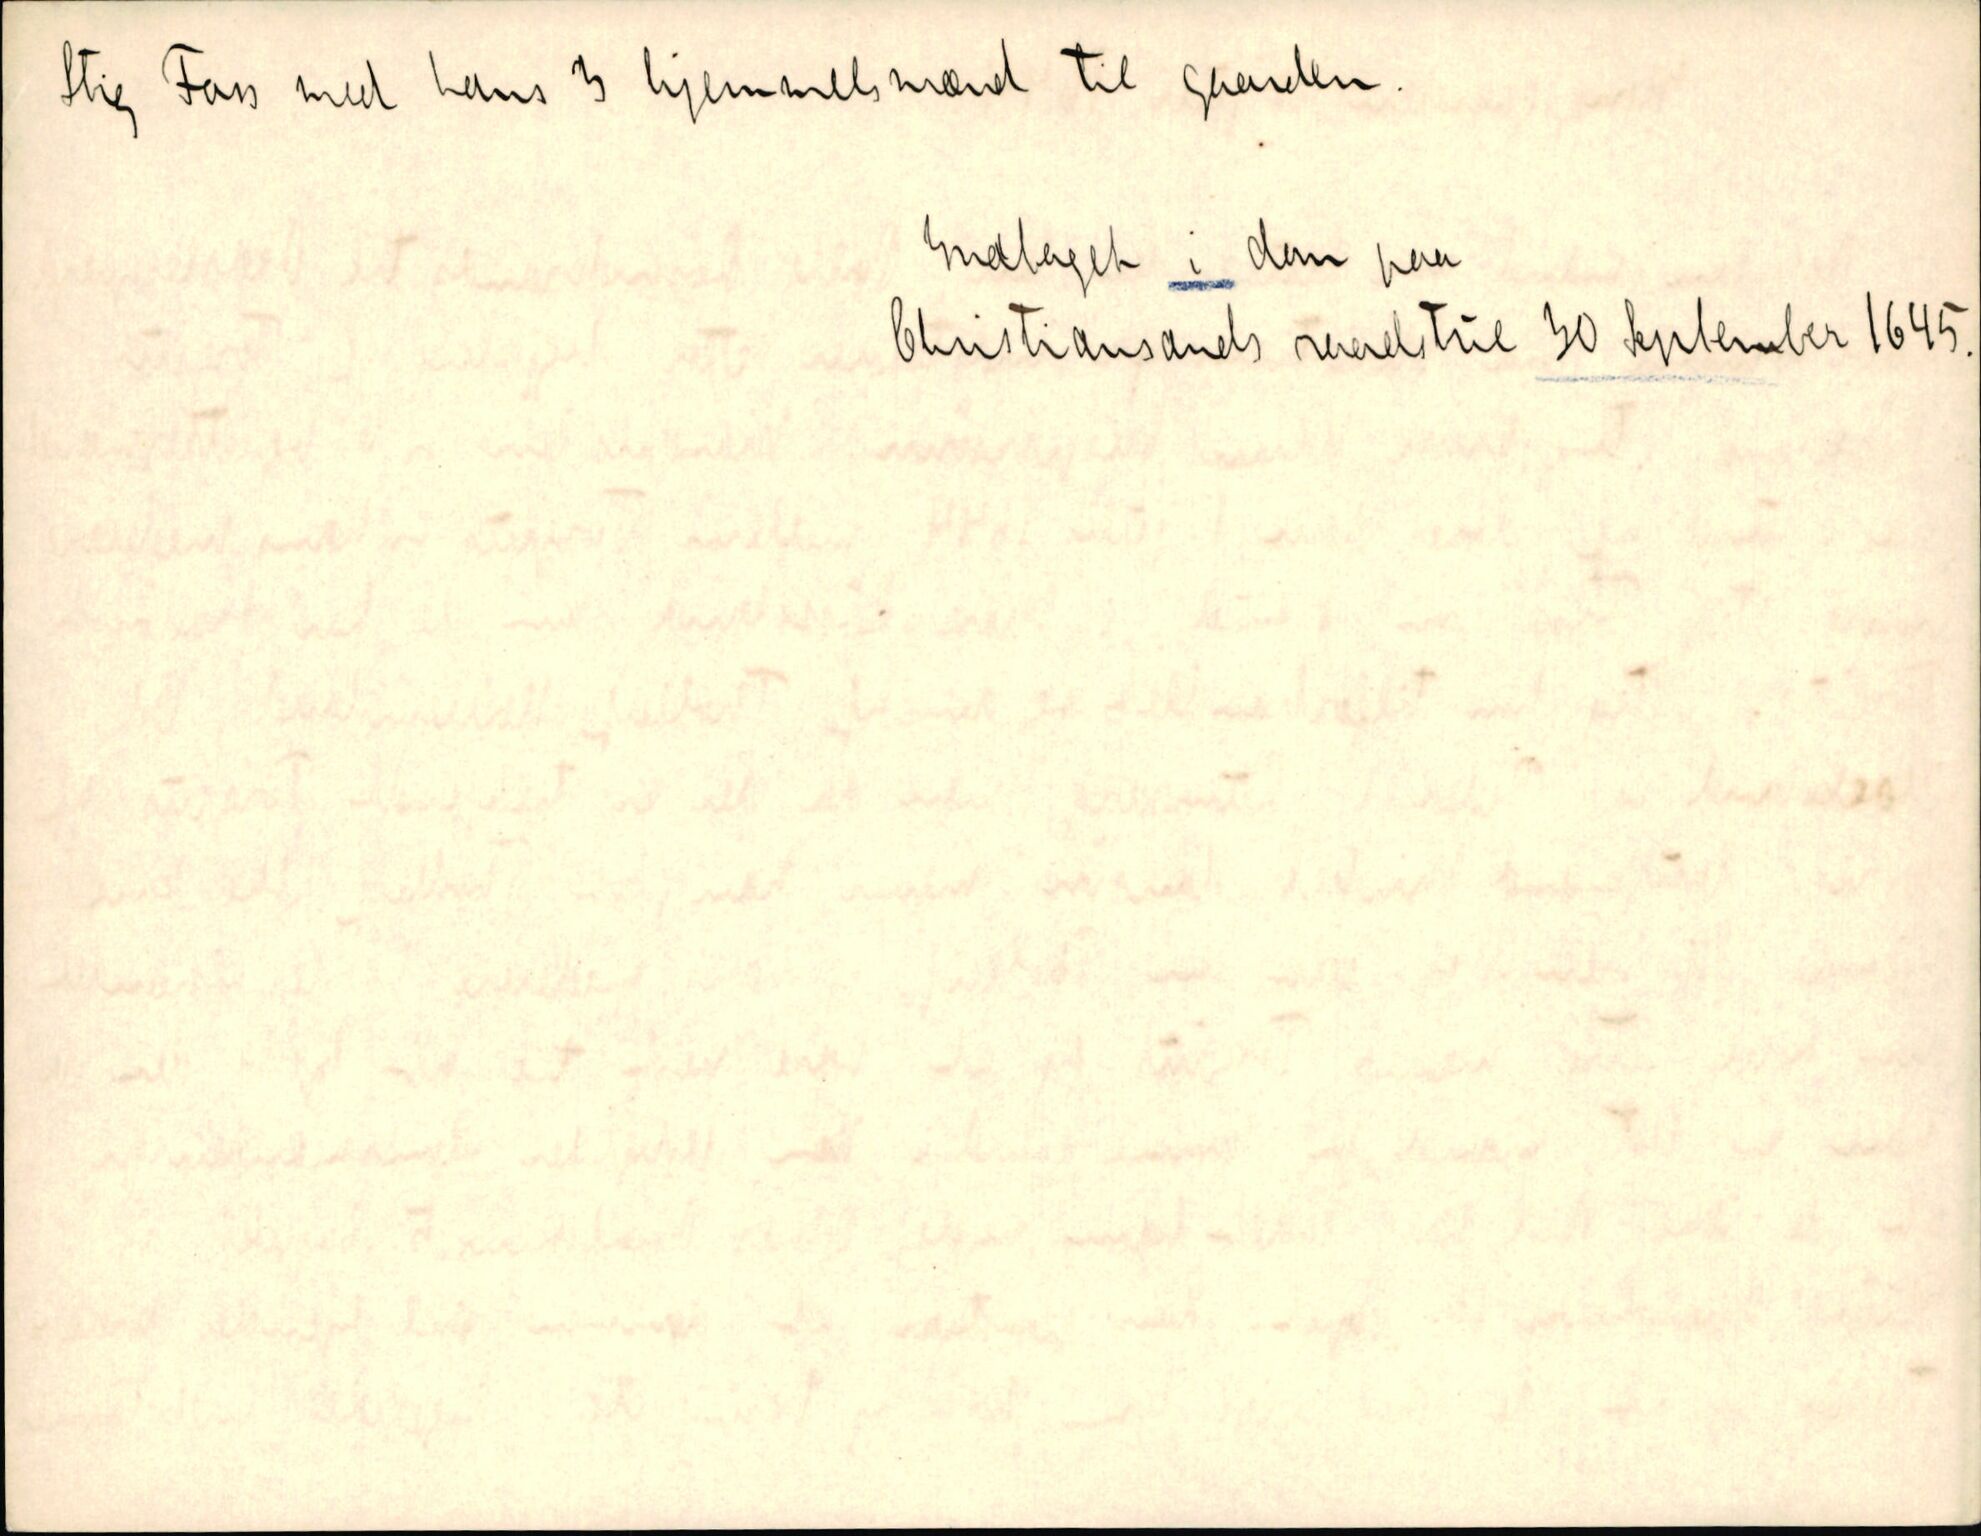 Stig Foss med hans 3 hjemmelsmænd til gaarden.
Indtaget i dom paa
Christiansands raadstue 30 September 1645.